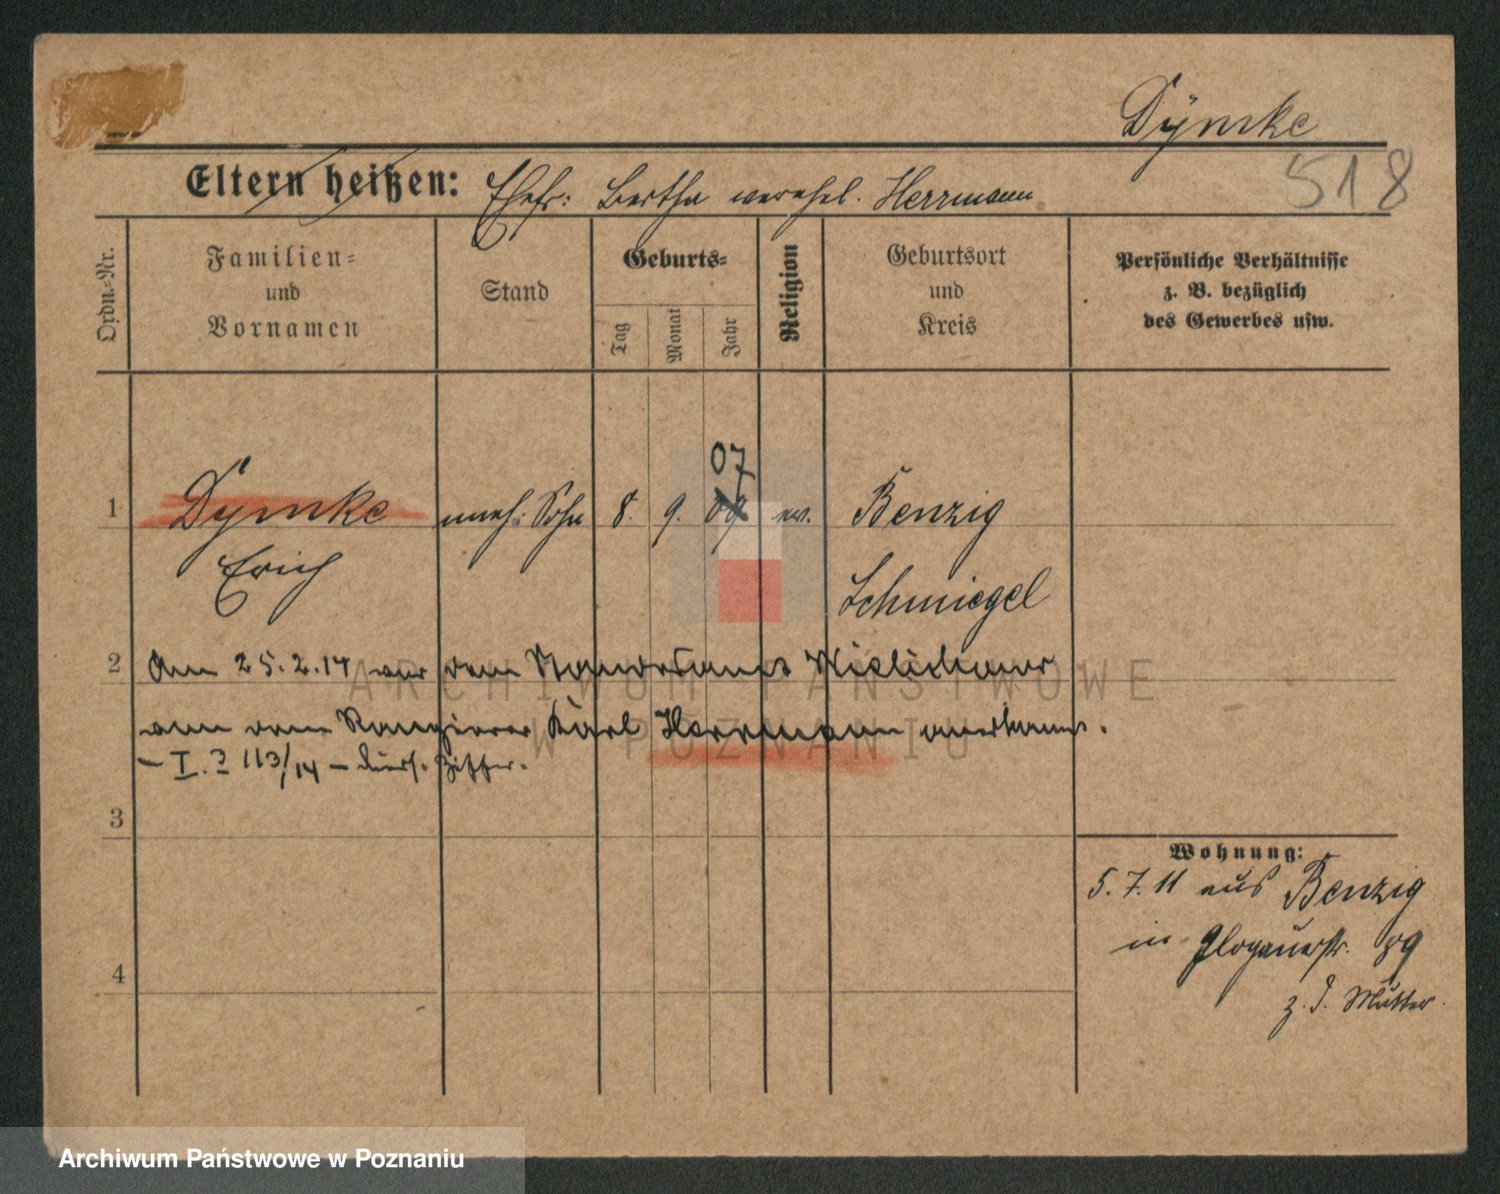 Dÿmke
518
Eltern heißen: Ehefr: Bertha verehel. Herrmann
Ordn.-Nr.
Familien-
und
Vornamen
Stand
Geburts-
Tag
Monat
Jahr
Religion
Geburtsort
und
Kreis
Persönliche Verhältnisse
z. B. bezüglich
des Gewerbes usw.
07
1 Dymke uneh. Sohn 8. 9. 09 ev. Benzig
Erich Schmiegel
2 Am 25.2.14 vor dem Standesamt
von dem Rangierer Karl Herrmann anerkannt.
– I. 3 113/14 –
3
4
Wohnung:
5.7.11 aus Benzig
in Glogauerstr. 89
z. d. Mutter.
ARCHIWUM PAŃSTWOWE
W POZNANIU
Archiwum Państwowe w Poznaniu